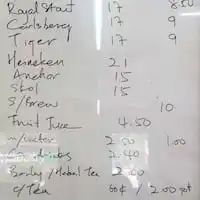 Royal Stout 17 8.50
Carlsberg 17 9
Tiger 17 9
Heineken 21
Anchor 15
Skol 15
S/Brew 10
Fruit Juice 4.50
m/water 2.50 1.00
Can drinks 2.40
Barley / Herbal Tea
C/Tea 60¢ / 2.00 pot